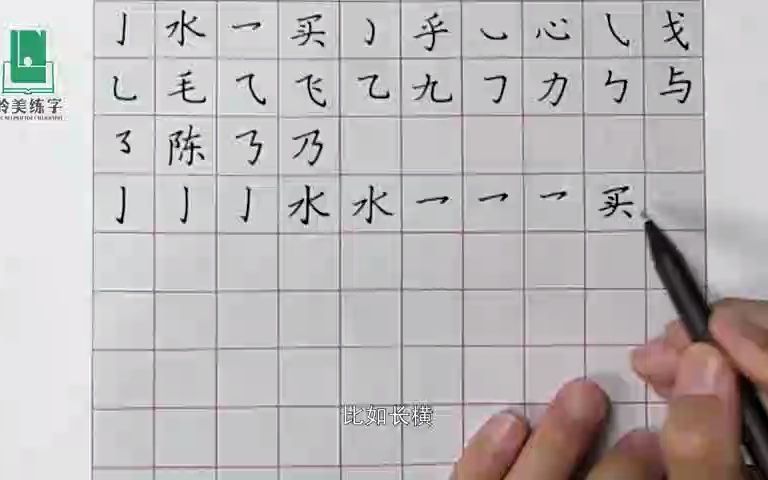 亅 水 乛 买 ㇁ 乎 ㇃ 心 ㇂ 戈
乚 毛 ⺄ 飞 乙 九 𠃌 力 ㄅ 与
㇌ 陈 ㇋ 乃
亅 亅 亅 水 水 乛 乛 乛 买
美练字
比如长横